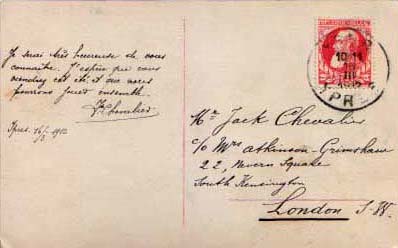 Je suis très heureuse de vous
connaitre. J'espère que vous
viendrez cet été et que nous
pourrons jouer ensemble.
J. Chevalier
Ypres 16/3 1912
10-11
III
YPRES
Mr Jack Chevalier
c/o Mrs Atkinson-Grimshaw
22, Nevern Square
South Kensington
London S-W.